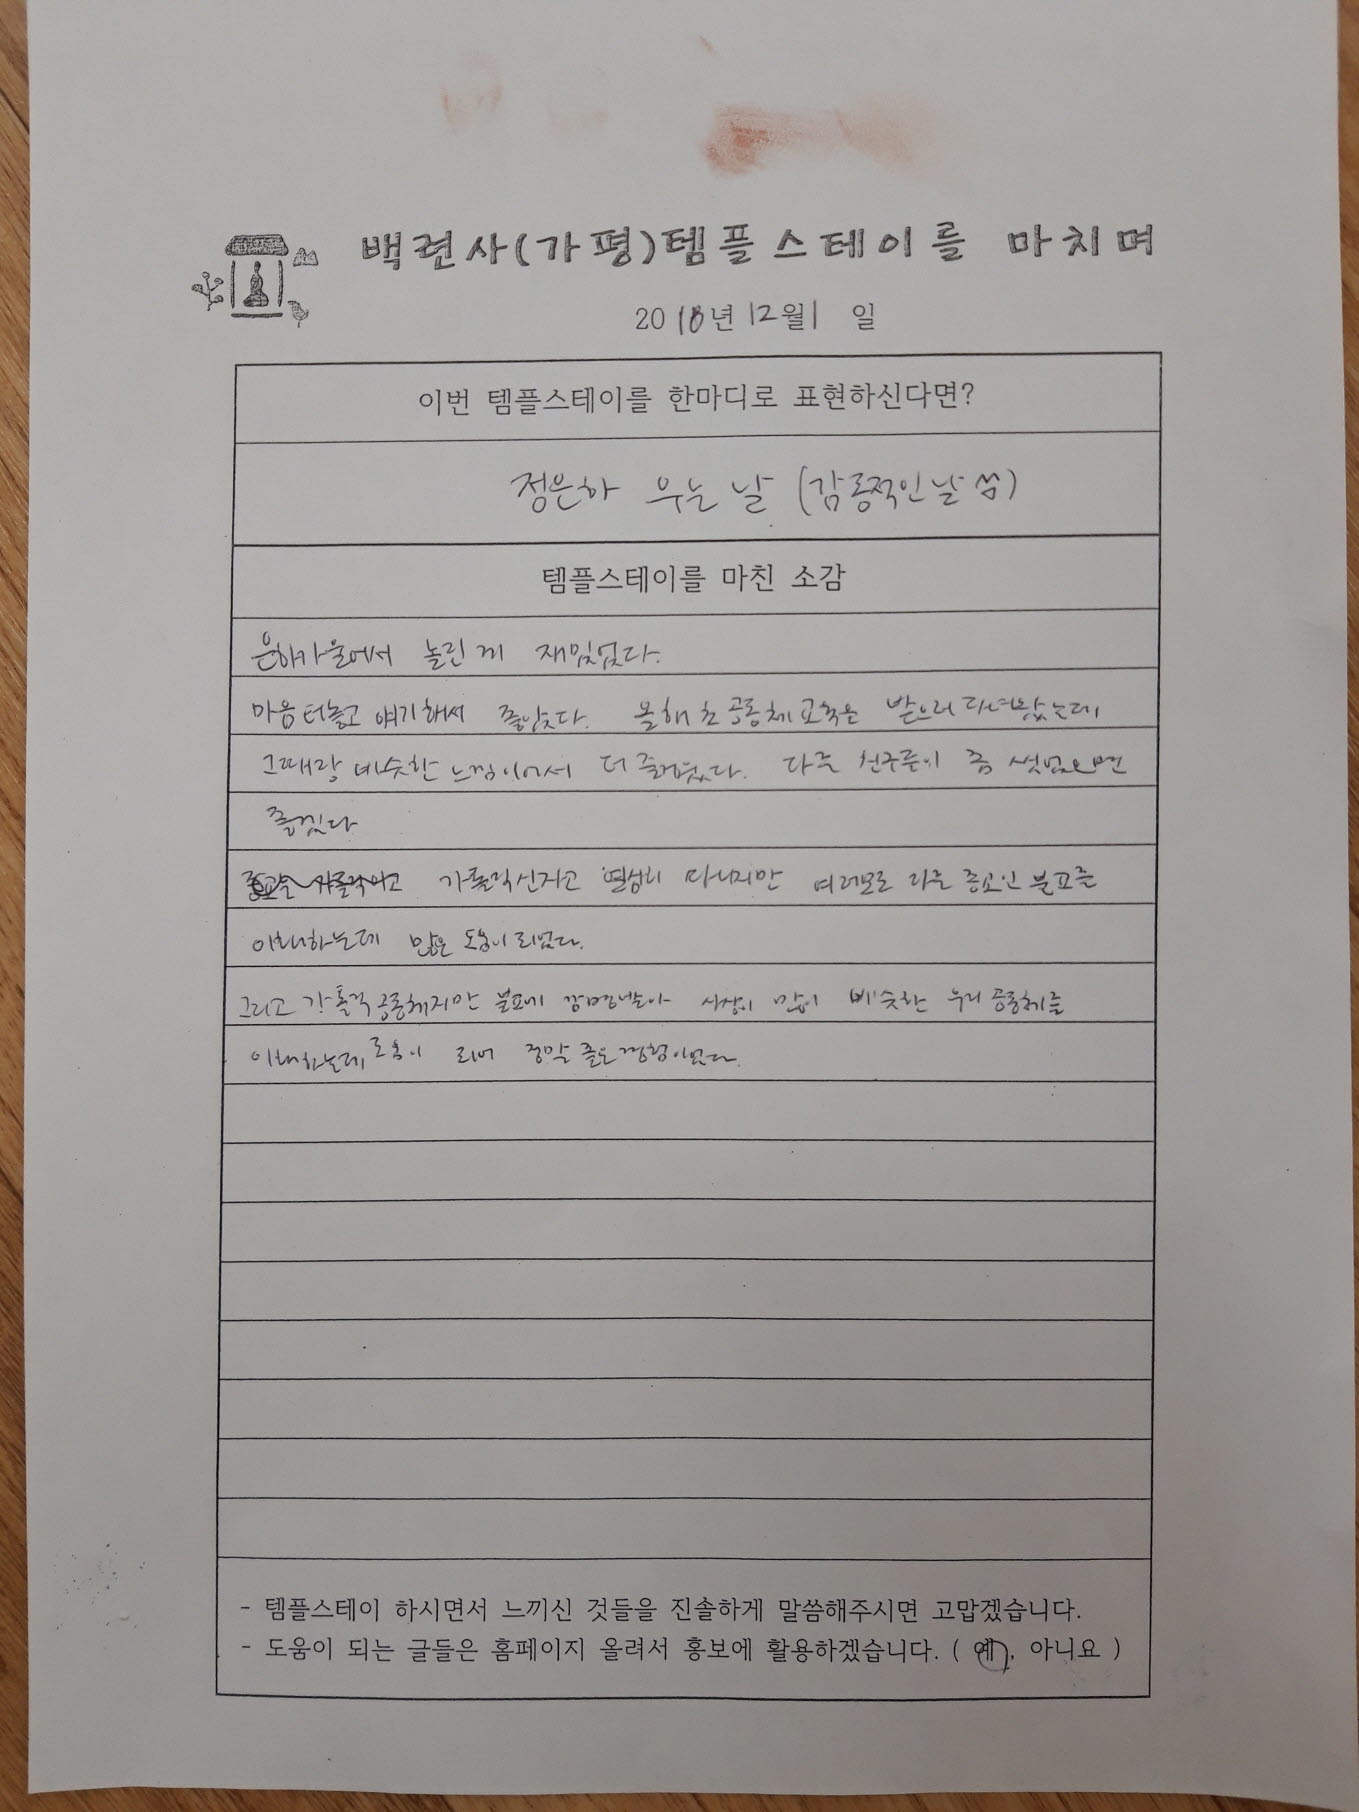 백련사(가평)템플스테이를 마치며
2018년 12월 1 일
이번 템플스테이를 한마디로 표현하신다면?
정은하 우는 날 (감동적인 날 씀)
템플스테이를 마친 소감
놀린 게 재밌었다.
마음 터놓고 얘기해서 좋았다. 올해 초 공동체 교육을 받으러 다녀왔는데
그때랑 비슷한 느낌이어서 더 즐거웠다. 다른 친구들이 좀 씻었으면
좋겠다
가톨릭신자고 열심히 다니지만 여러모로 다른 종교인 불교를
이해하는데 많은 도움이 되었다.
그리고 가톨릭 공동체지만 불교에 감명받아 사상이 많이 비슷한 우리 공동체를
이해하는데 도움이 되어 정말 좋은 경험이었다.
- 템플스테이 하시면서 느끼신 것들을 진솔하게 말씀해주시면 고맙겠습니다.
- 도움이 되는 글들은 홈페이지 올려서 홍보에 활용하겠습니다. ( 예, 아니요 )